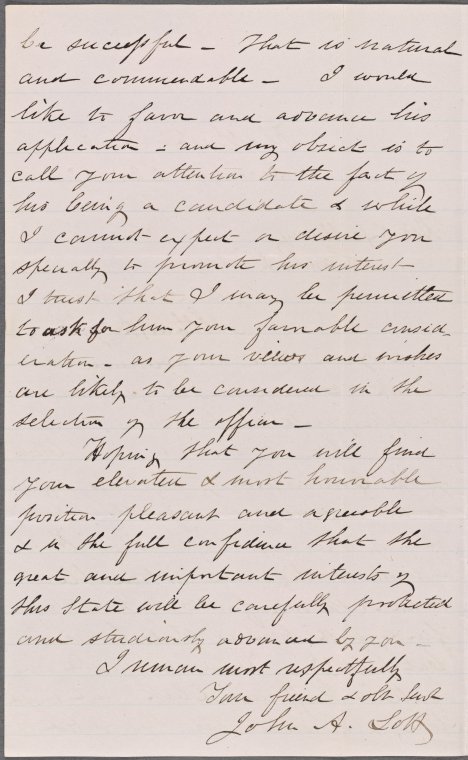 be successful – That is natural
and commendable – I would
like to favor and advance his
application – and my object is to
call your attention to the fact of
his being a candidate & while
I cannot expect or desire you
specially to promote his interest
I trust that I may be permitted
to ask for him your favorable consid-
eration – as your views and wishes
are likely to be considered in the
selection of the officer –
Hoping that you will find
your elevated & most honorable
position pleasant and agreeable
& in the full confidence that the
great and important interests of
this State will be carefully protected
and studiously advanced by you –
I remain most respectfully
Your friend & obt Servt
John A. Lott